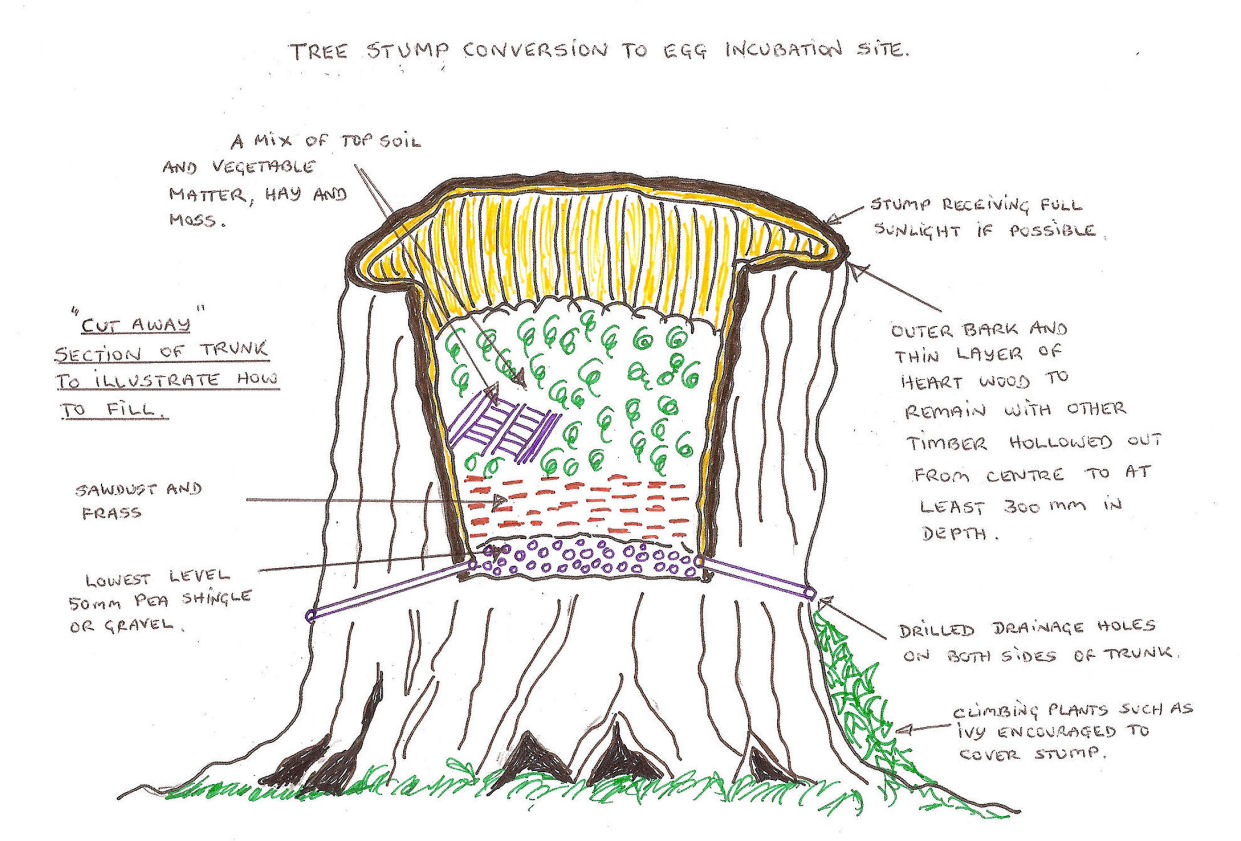 TREE STUMP CONVERSION TO EGG INCUBATION SITE.
A MIX OF TOP SOIL
AND VEGETABLE
MATTER, HAY AND
MOSS.
STUMP RECEIVING FULL
SUNLIGHT IF POSSIBLE.
"CUT AWAY"
SECTION OF TRUNK
TO ILLUSTRATE HOW
TO FILL.
OUTER BARK AND
THIN LAYER OF
HEART WOOD TO
REMAIN WITH OTHER
TIMBER HOLLOWED OUT
FROM CENTRE TO AT
LEAST 300 MM IN
DEPTH.
SAWDUST AND
FRASS
LOWEST LEVEL
50MM PEA SHINGLE
OR GRAVEL.
DRILLED DRAINAGE HOLES
ON BOTH SIDES OF TRUNK.
CLIMBING PLANTS SUCH AS
IVY ENCOURAGED TO
COVER STUMP.